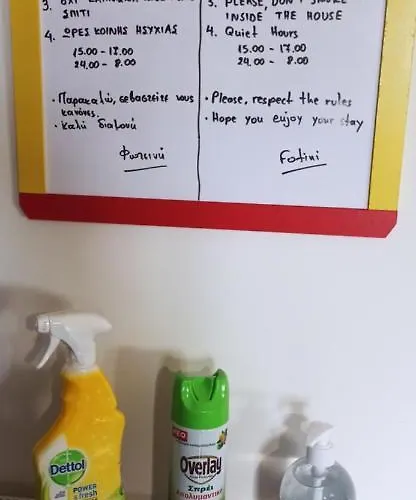 3. ΟΧΙ
ΣΠΙΤΙ
4. ΩΡΕΣ ΚΟΙΝΗΣ ΗΣΥΧΙΑΣ
15.00 - 17.00
24.00 - 8.00
• Παρακαλώ, σεβαστείτε τους
κανόνες.
• Καλή διαμονή
Φωτεινή
3. PLEASE, DON'T SMOKE
INSIDE THE HOUSE
4. Quiet Hours
15.00 - 17.00
24.00 - 8.00
• Please, respect the rules
• Hope you enjoy your stay
Fotini
Dettol
POWER
& fresh
ΝΕΟ
Overlay
Σπρέι
Απολυμαντικό